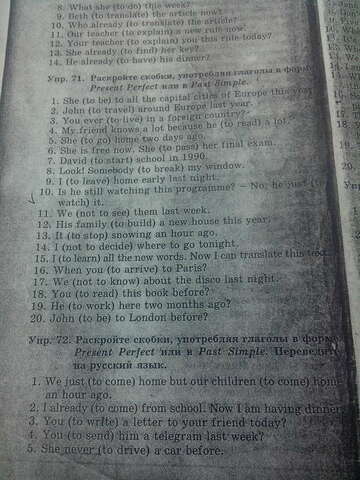 8. What she (to do) this week?
9. Beth (to translate) the article now?
10. Who already (to translate) the article?
11. Our teacher (to explain) a new rule now.
12. Your teacher (to explain) you this rule today?
13. She already (to find) her key?
14. He already (to have) his dinner?
Упр. 71. Раскройте скобки, употребляя глаголы в форме
Present Perfect или в Past Simple.
1. She (to be) to all the capital cities of Europe this year.
2. John (to travel) around Europe last year.
3. You ever (to live) in a foreign country?
4. My friend knows a lot because he (to read) a lot.
5. She (to go) home two days ago.
6. She is free now. She (to pass) her final exam.
7. David (to start) school in 1990.
8. Look! Somebody (to break) my window.
9. I (to leave) home early last night.
10. Is he still watching this programme? – No, he just (to
watch) it.
11. We (not to see) them last week.
12. His family (to build) a new house this year.
13. It (to stop) snowing an hour ago.
14. I (not to decide) where to go tonight.
15. I (to learn) all the new words. Now I can translate this
16. When you (to arrive) to Paris?
17. We (not to know) about the disco last night.
18. You (to read) this book before?
19. He (to work) here two months ago?
20. John (to be) to London before?
Упр. 72. Раскройте скобки, употребляя глаголы в форме
Present Perfect или в Past Simple. Переведите
на русский язык.
1. We just (to come) home but our children (to come) home
an hour ago.
2. I already (to come) from school. Now I am having dinner
3. You (to write) a letter to your friend today?
4. You (to send) him a telegram last week?
5. She never (to drive) a car before.